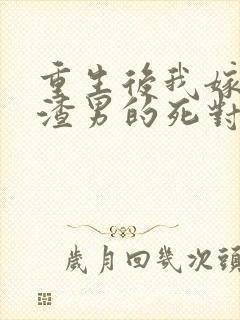 重生後我嫁
渣男的死對
歲月回幾次頭